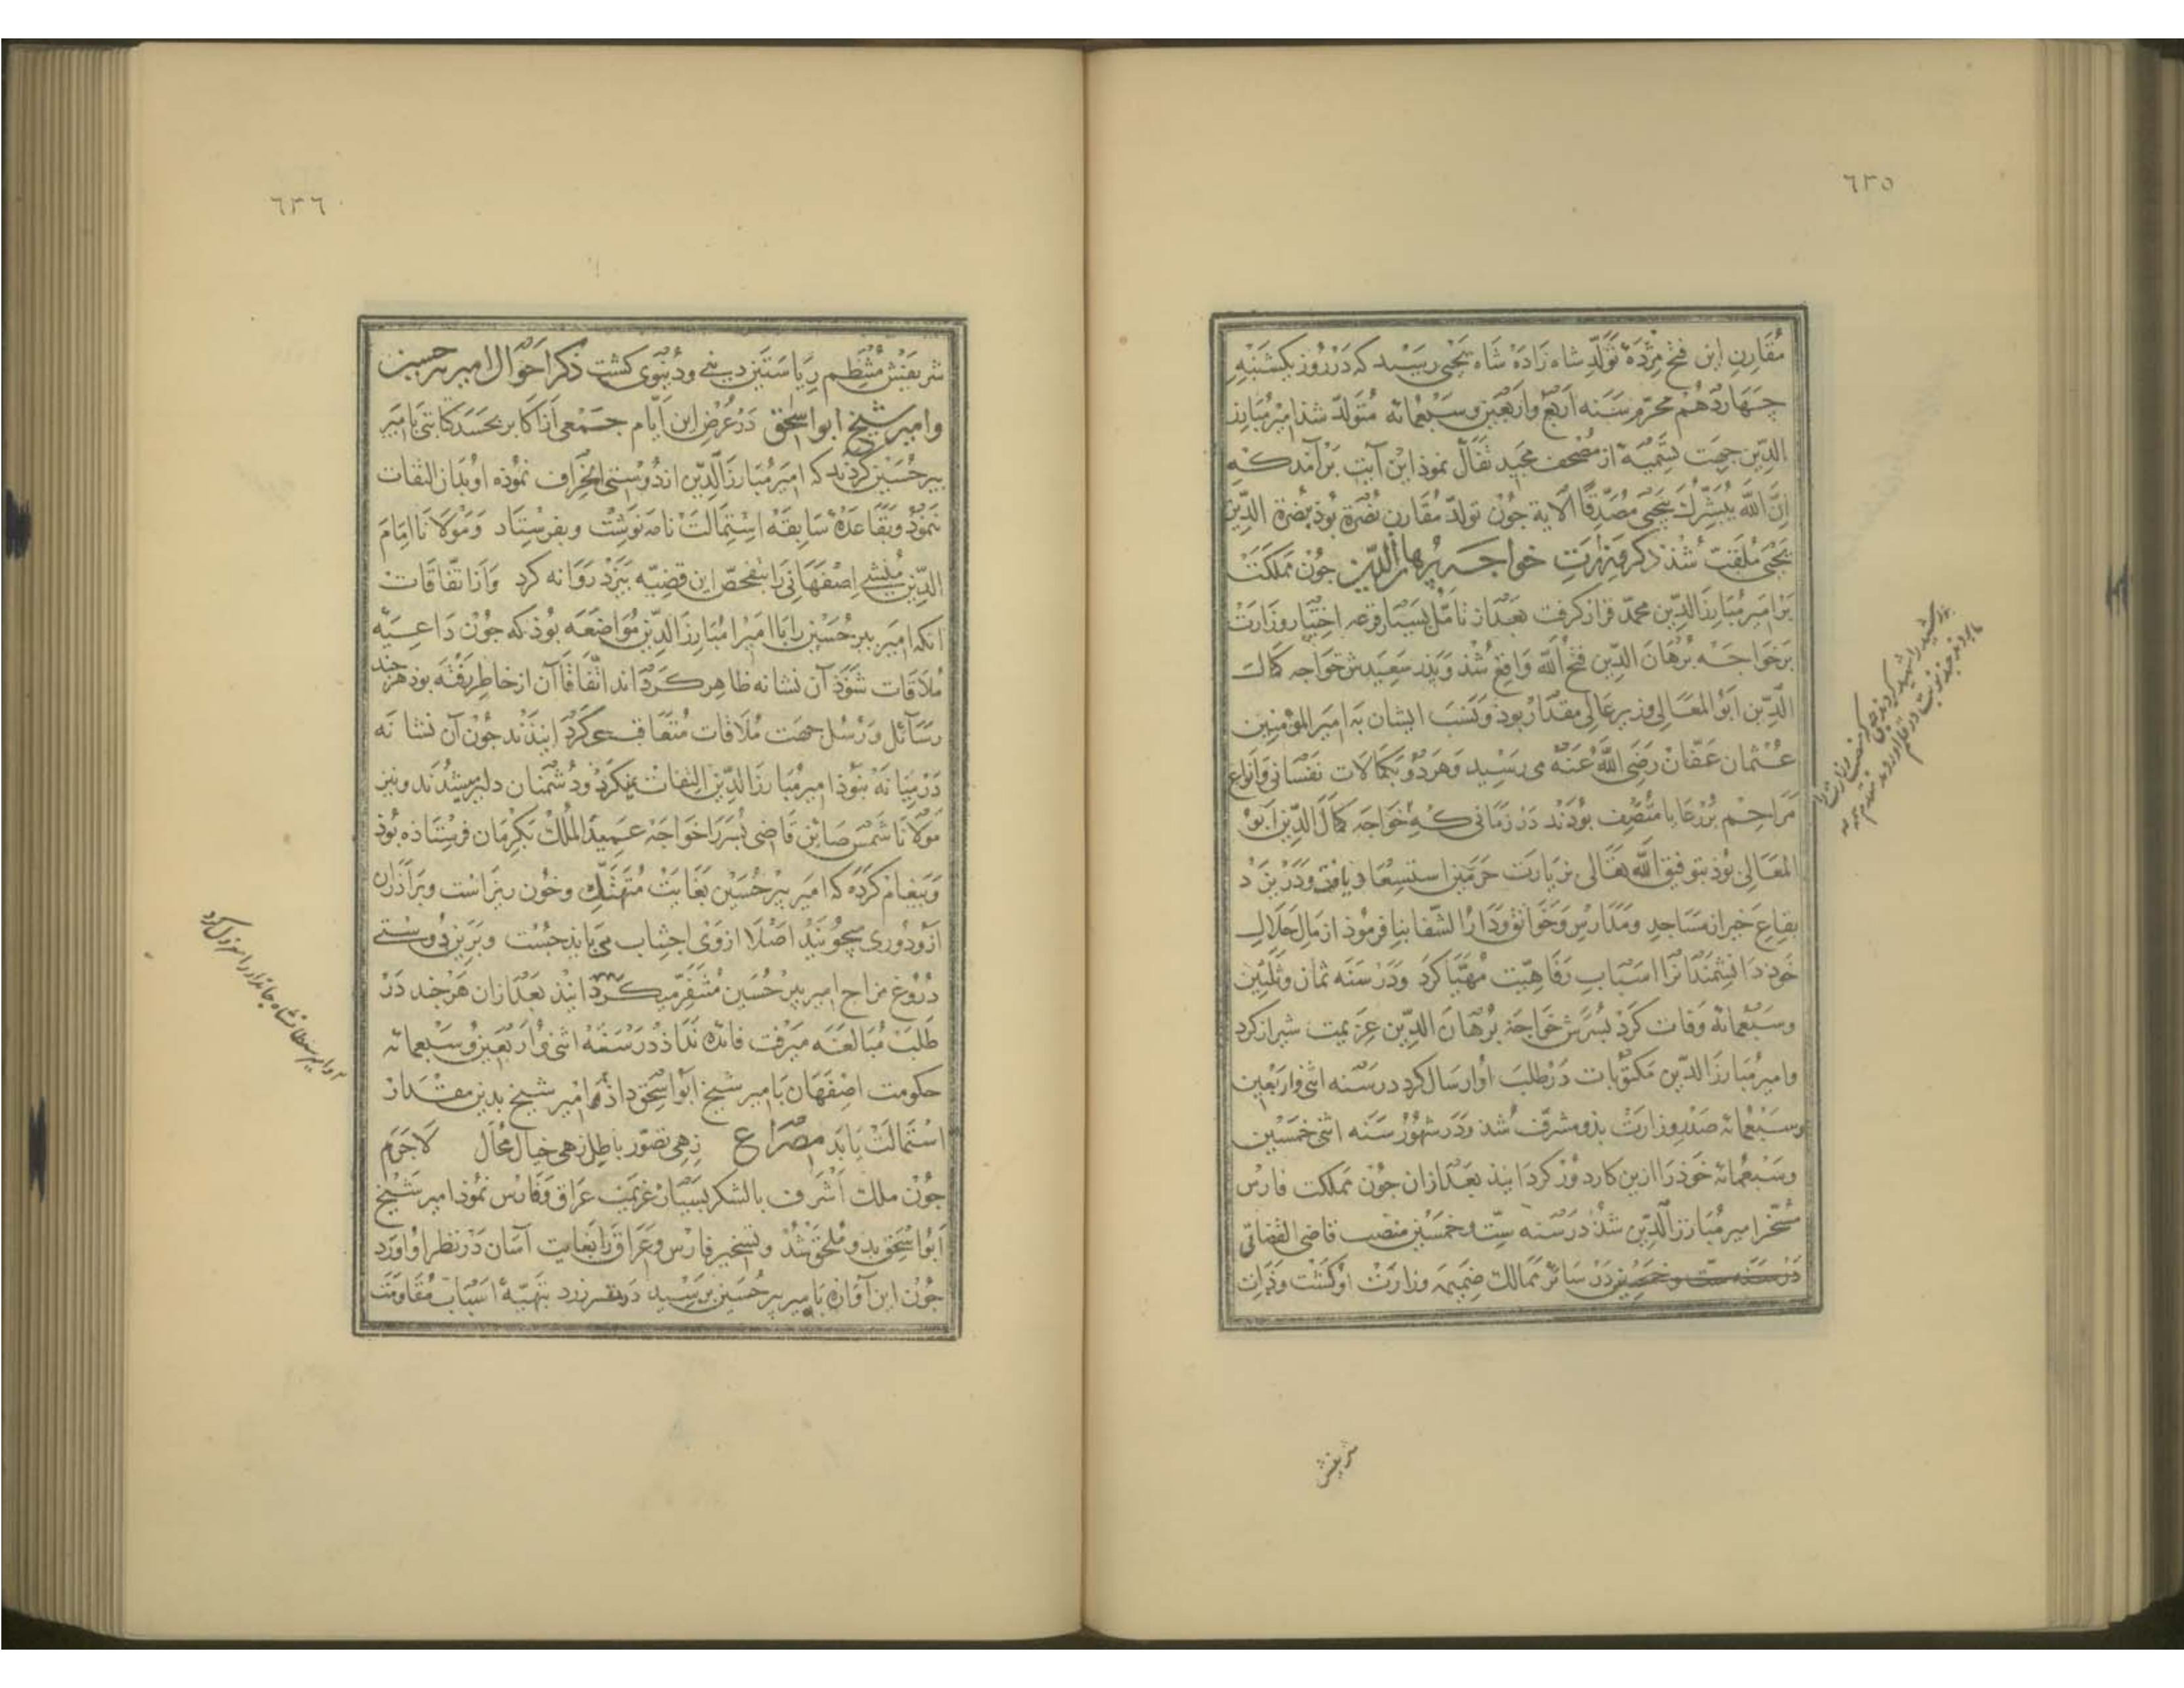 ٦٣٥
مُقارنِ این فتح مژدهٔ تولّدِ شاه زاده شاه یحیی رسید که در روز یکشنبهِ
چهاردهم محرّم سنه اربع واربعین وسبعمائه متولّد شذ امیر مبارز
الدّین جهت تسمیهٔ از مصحف مجید تفأل نموذ این آیت برآمد که
انّ الله یبشّرک بیحیی مصدّقاً الآیة جون تولّد مقارن نصرة بوذ بنصرة الدّین
یحیی ملقّب شذ ذکر وزارتِ خواجه برهان الدّین جون مملکت
بر امیر مبارز الدّین محمّد قرار کرفت بعد از تأمّل بسیار قرعه اختیار وزارت
بر خواجه برهان الدّین فتح الله واقع شذ وپدر سعیدش خواجه کمال
الدّین ابوالمعالی وزیر عالی مقدار بوذ ونسب ایشان به امیر المؤمنین
عثمان عفّان رضی الله عنه می رسید وهر دو بکمالات نفسانی وانواع
مراحم بر رعایا متّصف بودند در زمانی که خواجه کمال الدّین ابو
المعالی بوذ بتوفیق الله تعالی بزیارت حرمین استسعاد یافت ودر یزد
بقاعِ خیر از مساجد ومدارس وخوانق ودار الشّفا بنا فرموذ از مال حلال
خود دانشمندانرا اسباب رفاهیّت مهیّا کرد ودر سنه ثمان وثلثین
وسبعمائه وفات کرد پسرش خواجه برهان الدّین عزیمت شیراز کرد
وامیر مبارز الدّین مکتوبات در طلب او ارسال کرد در سنه اثنی واربعین
وسبعمائه صدر وزارت بذو مشرّف شذ ودر شهور سنه اثنی خمسین
وسبعمائه خوذ را ازین کار دور کردانیذ بعد ازان جون مملکت فارس
مسخّر امیر مبارز الدّین شذ در سنه ستّ وخمسین منصب قاضی القضاتی
در سنه ستّ وخمسین در سائر ممالک ضمیمه وزارت او کشت وذات
شریفش
٦٣٦
شریفش منتظم ریاستین دینی ودنیوی کشت ذکر احوال امیر پیر حسین
وامیر شیخ ابو اسحق در عرض این ایّام جمعی از اکابر بحسد کتابتی بامیر
پیر حسین کردند که امیر مبارز الدّین از دوستی انحراف نموده او بدان التفات
ننموذ وبقاعدهٔ سابقه استمالت نامه نوشت وبفرستاد ومولانا امام
الدّین منشی اصفهانی را بتفحّص این قضیّه بیزد روانه کرد وازاتّفاقات
آنکه امیر پیر حسین را با امیر مبارز الدّین مواضعه بوذ که جون داعیّه
ملاقات شوذ آن نشانه ظاهر کرداند اتّفاقاً آن از خاطر رفته بوذ هر جند
رسائل ورسل جهت ملاقات متعاقب می کردانیذند جون آن نشانه
در میانه نبوذ امیر مبارز الدّین التفات نمیکرد ودشمنان دلیر میشدند ونیز
مولانا شمس صائن قاضی پسر را خواجه عمید الملک بکرمان فرستاذه بوذ
وپیغام کرده که امیر پیر حسین بغایت متهتّک وخون ریز است وبراذران
ازو دوری میجویند اصلا از وی اجتناب می باید جست وبرین دوستی
دروغ مزاج امیر پیر حسین متنفّر میکردانیذ بعد ازان هر جند در
طلب مبالغه میرفت فائده نداذ در سنه اثنی واربعین وسبعمائه
حکومت اصفهان بامیر شیخ ابو اسحق داذ تا امیر شیخ بدین مقدار
استمالت یابد مصراع زهی تصوّر باطل زهی خیال محال لاجرم
جون ملک اشرف با لشکر بسیار عزیمت عراق وفارس نمود امیر شیخ
ابو اسحق بدو ملحق شذ وتسخیر فارس وعراق را بغایت آسان در نظر او آورد
جون این آوازه بامیر پیر حسین برسید بتهیّهٔ اسباب مقاومت